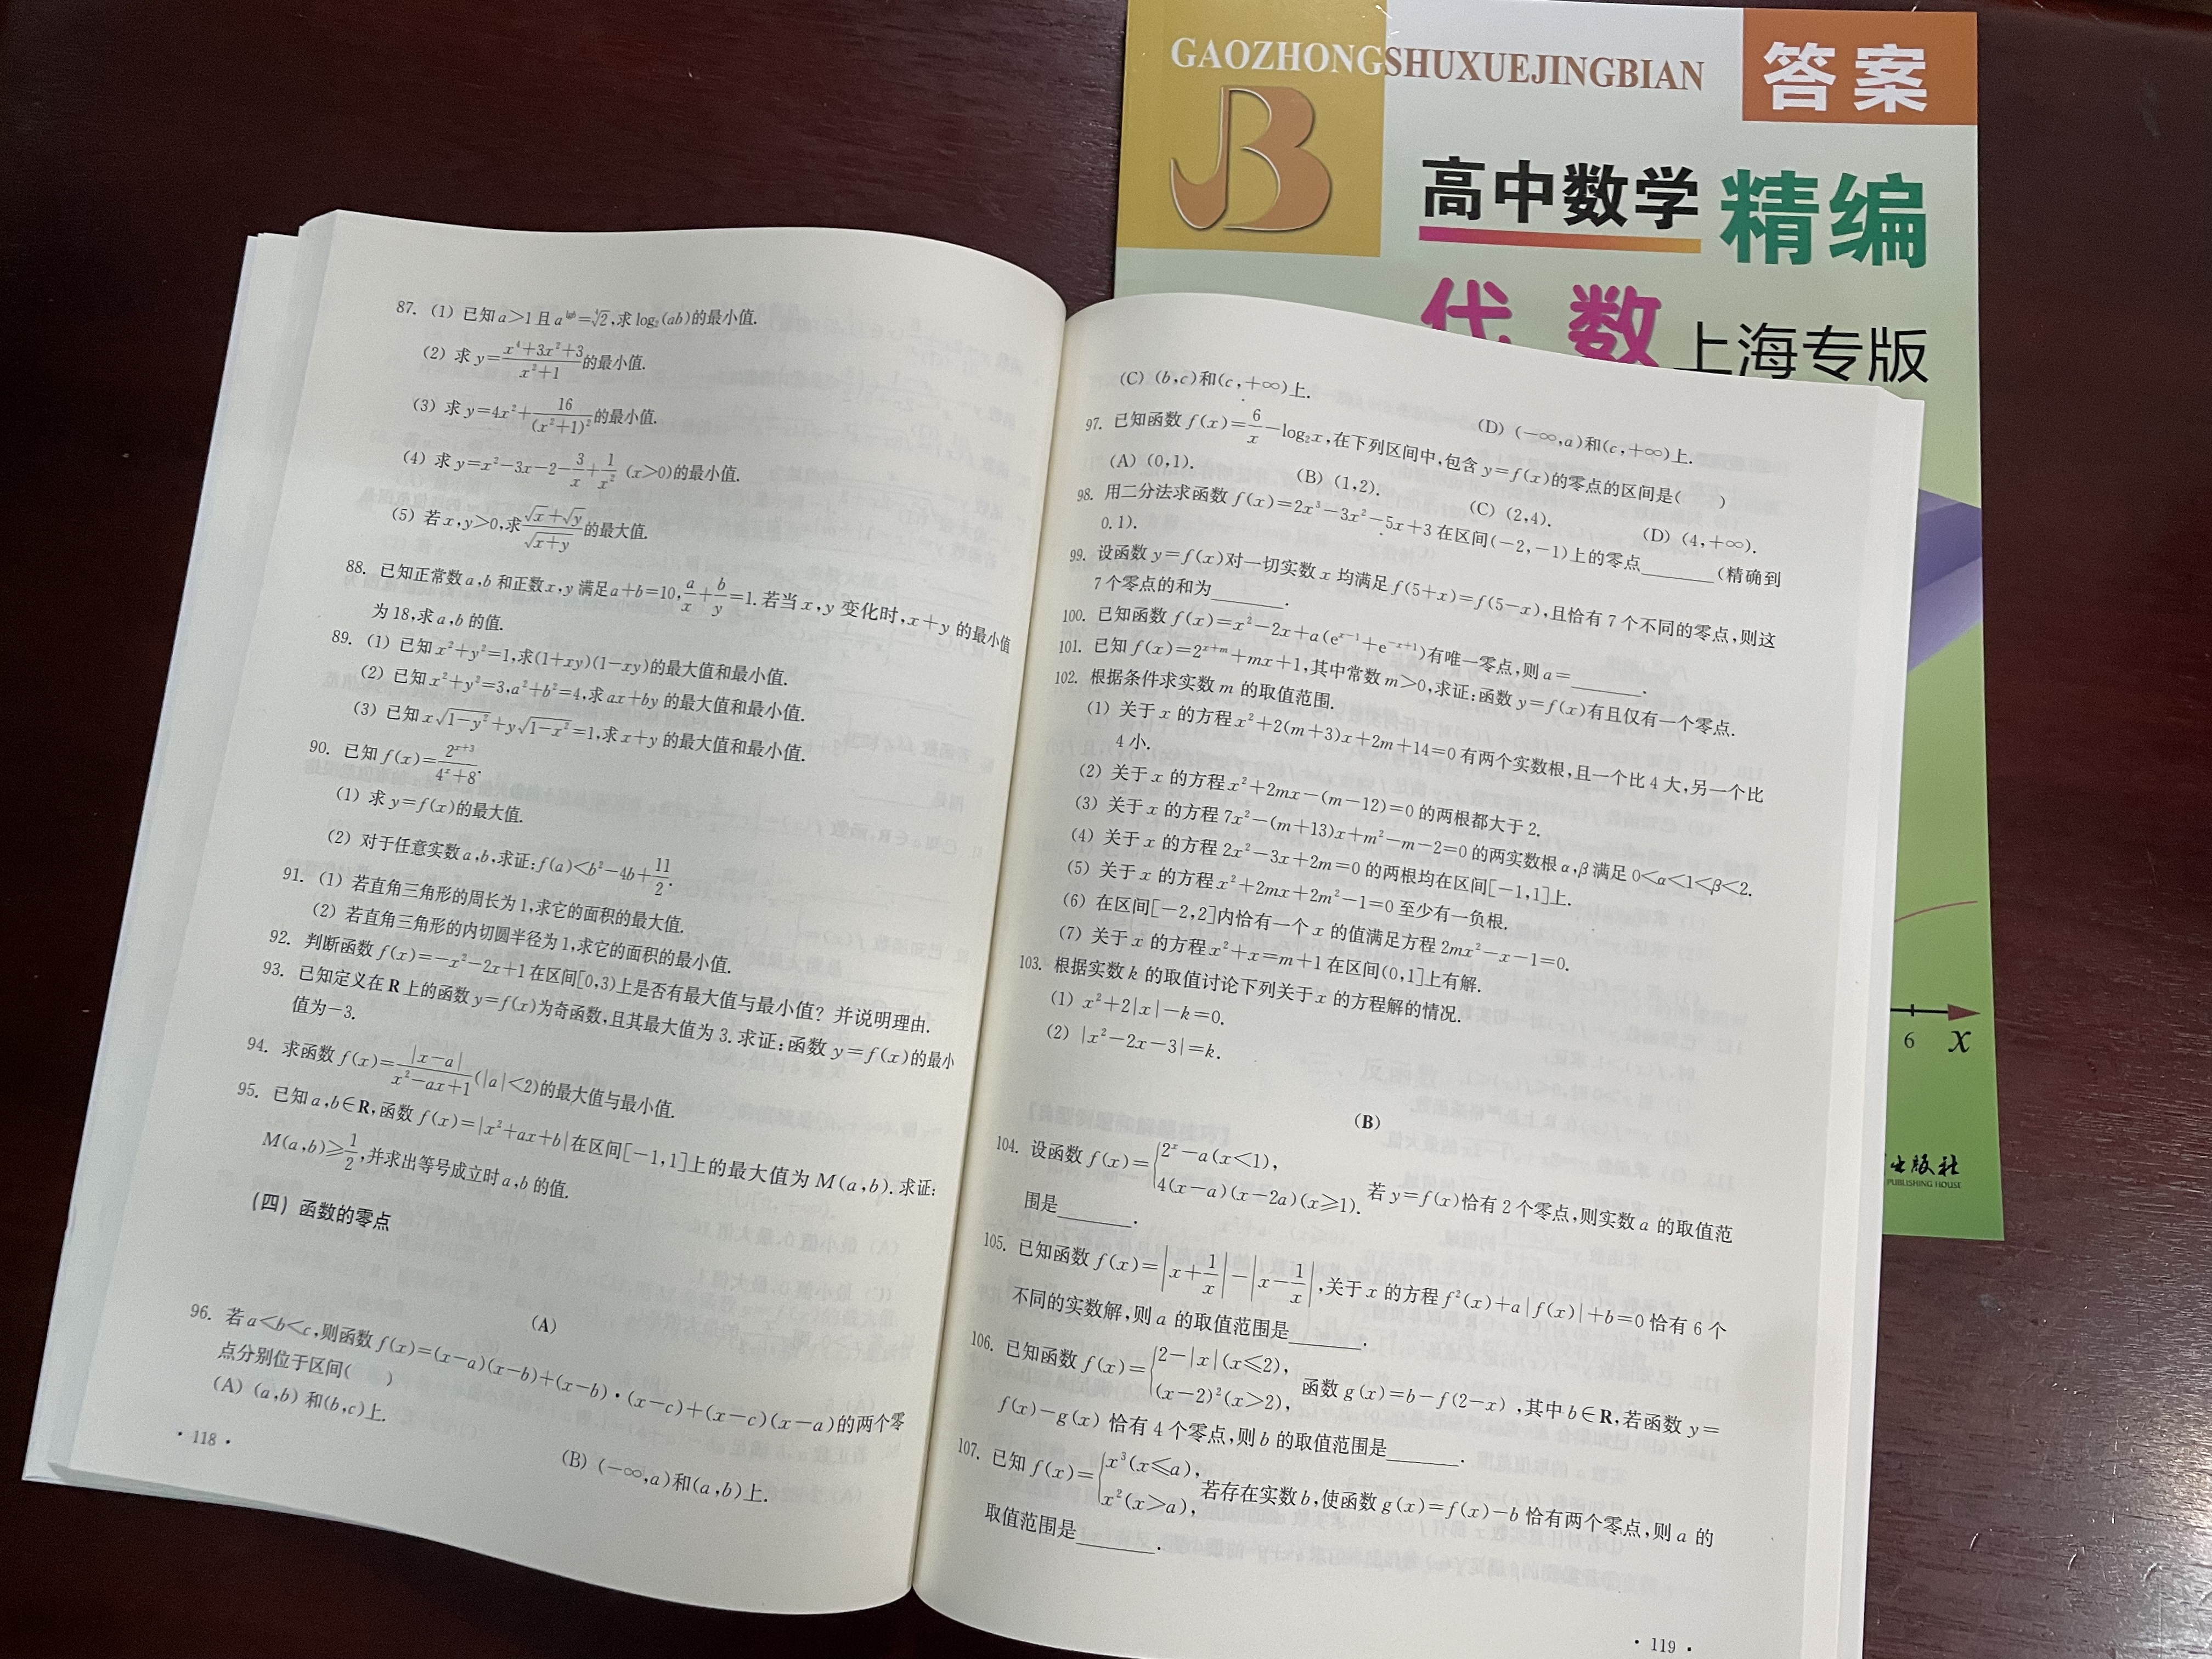 GAOZHONGSHUXUEJINGBIAN
答案
高中数学 精编
代数 上海专版
6 x
出版社
PUBLISHING HOUSE
87. (1) 已知a>1且a^{lgb}=\sqrt[4]{2},求log₂(ab)的最小值.
(2) 求y=\frac{x⁴+3x²+3}{x²+1}的最小值.
(3) 求y=4x²+\frac{16}{(x²+1)²}的最小值.
(4) 求y=x²-3x-2-\frac{3}{x}+\frac{1}{x²} (x>0)的最小值.
(5) 若x,y>0,求\frac{\sqrt{x}+\sqrt{y}}{\sqrt{x+y}}的最大值.
88. 已知正常数a,b和正数x,y满足a+b=10,\frac{a}{x}+\frac{b}{y}=1.若当x,y变化时,x+y的最小值
为18,求a,b的值.
89. (1) 已知x²+y²=1,求(1+xy)(1-xy)的最大值和最小值.
(2) 已知x²+y²=3,a²+b²=4,求ax+by的最大值和最小值.
(3) 已知x\sqrt{1-y²}+y\sqrt{1-x²}=1,求x+y的最大值和最小值.
90. 已知f(x)=\frac{2^{x+3}}{4^x+8}.
(1) 求y=f(x)的最大值.
(2) 对于任意实数a,b,求证:f(a)<b²-4b+\frac{11}{2}.
91. (1) 若直角三角形的周长为1,求它的面积的最大值.
(2) 若直角三角形的内切圆半径为1,求它的面积的最小值.
92. 判断函数f(x)=-x²-2x+1在区间[0,3)上是否有最大值与最小值？并说明理由.
93. 已知定义在R上的函数y=f(x)为奇函数,且其最大值为3.求证:函数y=f(x)的最小
值为-3.
94. 求函数f(x)=\frac{|x-a|}{x²-ax+1}(|a|<2)的最大值与最小值.
95. 已知a,b∈R,函数f(x)=|x²+ax+b|在区间[-1,1]上的最大值为M(a,b).求证:
M(a,b)≥\frac{1}{2},并求出等号成立时a,b的值.
(四) 函数的零点
(A)
96. 若a<b<c,则函数f(x)=(x-a)(x-b)+(x-b)·(x-c)+(x-c)(x-a)的两个零
点分别位于区间( )
(A) (a,b)和(b,c)上.
(B) (-∞,a)和(a,b)上.
· 118 ·
(C) (b,c)和(c,+∞)上.
(D) (-∞,a)和(c,+∞)上.
97. 已知函数f(x)=\frac{6}{x}-log₂x,在下列区间中,包含y=f(x)的零点的区间是( )
(A) (0,1). (B) (1,2). (C) (2,4). (D) (4,+∞).
98. 用二分法求函数f(x)=2x³-3x²-5x+3在区间(-2,-1)上的零点______(精确到
0.1).
99. 设函数y=f(x)对一切实数x均满足f(5+x)=f(5-x),且恰有7个不同的零点,则这
7个零点的和为______.
100. 已知函数f(x)=x²-2x+a(e^{x-1}+e^{-x+1})有唯一零点,则a=______.
101. 已知f(x)=2^{x+m}+mx+1,其中常数m>0,求证:函数y=f(x)有且仅有一个零点.
102. 根据条件求实数m的取值范围.
(1) 关于x的方程x²+2(m+3)x+2m+14=0有两个实数根,且一个比4大,另一个比
4小.
(2) 关于x的方程x²+2mx-(m-12)=0的两根都大于2.
(3) 关于x的方程7x²-(m+13)x+m²-m-2=0的两实数根α,β满足0<α<1<β<2.
(4) 关于x的方程2x²-3x+2m=0的两根均在区间[-1,1]上.
(5) 关于x的方程x²+2mx+2m²-1=0至少有一负根.
(6) 在区间[-2,2]内恰有一个x的值满足方程2mx²-x-1=0.
(7) 关于x的方程x²+x=m+1在区间(0,1]上有解.
103. 根据实数k的取值讨论下列关于x的方程解的情况.
(1) x²+2|x|-k=0.
(2) |x²-2x-3|=k.
(B)
104. 设函数f(x)=\begin{cases}2^x-a(x<1),\\4(x-a)(x-2a)(x≥1).\end{cases}若y=f(x)恰有2个零点,则实数a的取值范
围是______.
105. 已知函数f(x)=|x+\frac{1}{x}|-|x-\frac{1}{x}|,关于x的方程f²(x)+a|f(x)|+b=0恰有6个
不同的实数解,则a的取值范围是______.
106. 已知函数f(x)=\begin{cases}2-|x|(x≤2),\\(x-2)²(x>2),\end{cases}函数g(x)=b-f(2-x),其中b∈R,若函数y=
f(x)-g(x)恰有4个零点,则b的取值范围是______.
107. 已知f(x)=\begin{cases}x³(x≤a),\\x²(x>a),\end{cases}若存在实数b,使函数g(x)=f(x)-b恰有两个零点,则a的
取值范围是______.
· 119 ·